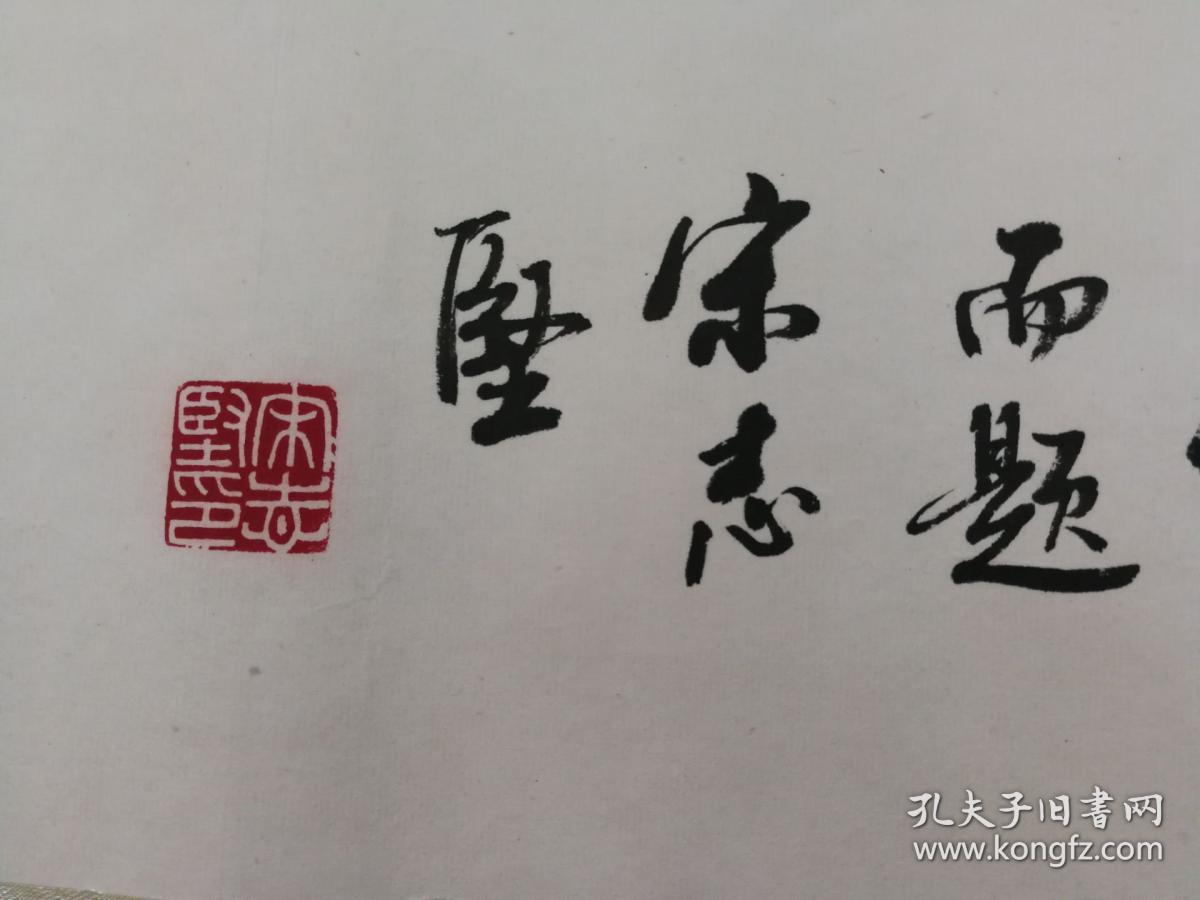 而题
宋志
坚
宋志坚印
孔夫子旧書网
www.kongfz.com